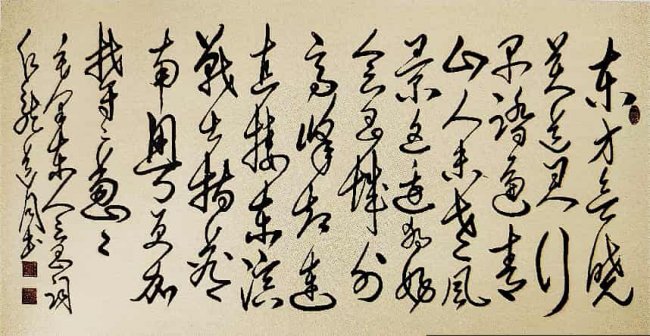 东方欲晓
莫道君行
早踏遍青
山人未老风
景这边独好
会昌城外
高峰颠连
直接东溟
战士指看
南粤更加
郁郁葱葱
毛泽东会昌词
书